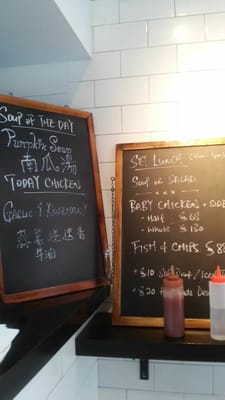 Soup of The Day
Pumpkin Soup
南瓜湯
Today Chicken
Garlic & Rosemary
蒜茸迷迭香
牛油
Set Lunch
Soup or Salad
Baby Chicken + Side
- Half $68
- Whole $
Fish & Chips $8
+ $10 Soft Drink / Iced
+ $20